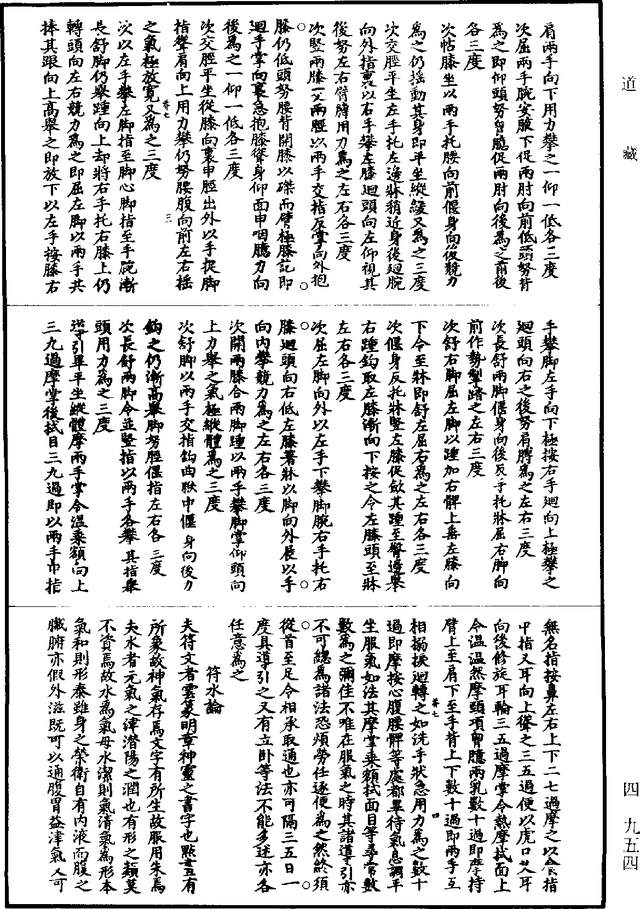 道藏
肩兩手向下用力攀之一仰一低各三度
次屈兩手腕安腋下促兩肘向前低頭努背
爲之即仰頭努胷臆促兩肘向後爲之前後
各三度
次帖膝坐以兩手托腰向前偃身向後競力
爲之仍揺動其身即平坐縱緩又爲之三度
次交脛平坐左手托左邊牀稍近身後廻腕
向外指裏以右手攀左膝廻頭向左仰視其
後努左右臂膊用力爲之左右各三度
次竪兩膝叉兩脛以兩手交指反掌向外抱
膝仍低頭努腰背開膝以磔而臂極膝訖即
廻手掌向裏急抱膝聳身仰面申咽臆力向
後爲之一仰一低各三度
次交脛平坐從膝向裏申脛出外以手捉脚
指聳肩向上用力攀仍努腰腹向前左右揺
之氣極放寛又爲之三度
三
次以左手攀左脚指至脚心脚指至手腕漸
長舒脚仍舉踵向上却將右手托右膝上仍
轉頭向左右競力爲之即屈左脚以兩手共
捧其跟向上高舉之即放下以左手按膝右
手攀脚左手向下極按右手廻向上極攀之
廻頭向右之後努肩膊爲之左右三度
次長舒兩脚偃身向後反手托牀屈右脚向
前作勢掣踏之左右三度
次舒右脚屈左脚以踵加右髀上垂左膝向
下令至牀即舒左屈右爲之左右各三度
次偃身反托牀竪左膝促斂其踵至臀邊舉
右踵鈎取左膝漸向下按之令左膝頭至牀
左右各三度
次屈左脚向外以左手下攀脚腕右手托右
膝廻頭向右低左膝著牀以脚向外展以手
向内攀競力爲之左右各三度
次開兩膝合兩脚踵以兩手攀脚掌仰頭向
上力舉之氣極縱體爲之三度
次舒脚以兩手交指鈎曲䐐中偃身向後力
鈎之仍漸高舉脚努脛偃指左右各三度
次長舒兩脚令並竪指以兩手各攀其指舉
頭用力爲之三度
導引畢平坐縱體摩兩手掌令温乗額向上
三九過摩掌後拭目三九過即以兩手中指
無名指按鼻左右上下二七過摩之以食指
中指叉耳向上聳之三五過便以虎口叉耳
向後修旋耳輪三五過摩掌令熱摩拭面上
令温温然摩頭項胷臆兩乳數十過即摩持
臂上至肩下至手背上下數十過即兩手互
四
相搦捩廻轉之如洗手狀急用力爲之數十
過即摩按心腹腰髀等處都畢待氣息調平
坐服氣如法其摩掌乗額拭面目等尋常數
數爲之彌佳不唯在服氣之時其諸導引亦
不可緫爲諸法恐煩勞任逐便爲之然終須
從首至足令相承取通也亦可隔三五日一
度具導引之又有立卧等法不能多述亦各
任意爲之
符水論
夫符文者雲篆明章神靈之書字也點畫有
所象故神氣存焉文字有所生故服用朱焉
夫水者元氣之津潜陽之潤也有形之類莫
不資焉故水爲氣母水潔則氣清氣爲形本
氣和則形泰雖身之榮衛自有内液而腹之
臟腑亦假外滋既可以通腹胃益津氣人可
四九五四